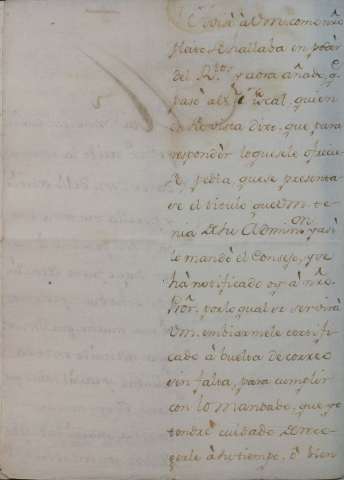 Avisé à Vm. como n͠ro
pleyto se hallaba en poder
del R.tor y aora añado, q.e
pasó al s.r fiscal, quien
en su vista dixo, que para
responder lo que se le ofrecie-
se, pedia, que se presenta-
se el titulo que Vm. te-
nia de su Admin.on, y asi
lo mandó el Consejo, y se
há notificado oy á n͠ro
Pror, por lo qual se servirá
Vm. embiarmele certifi-
cado á buelta de correo
sin falta, para cumplir
con lo mandado, que yo
tendré cuidado de
á su tiempo, ó bien